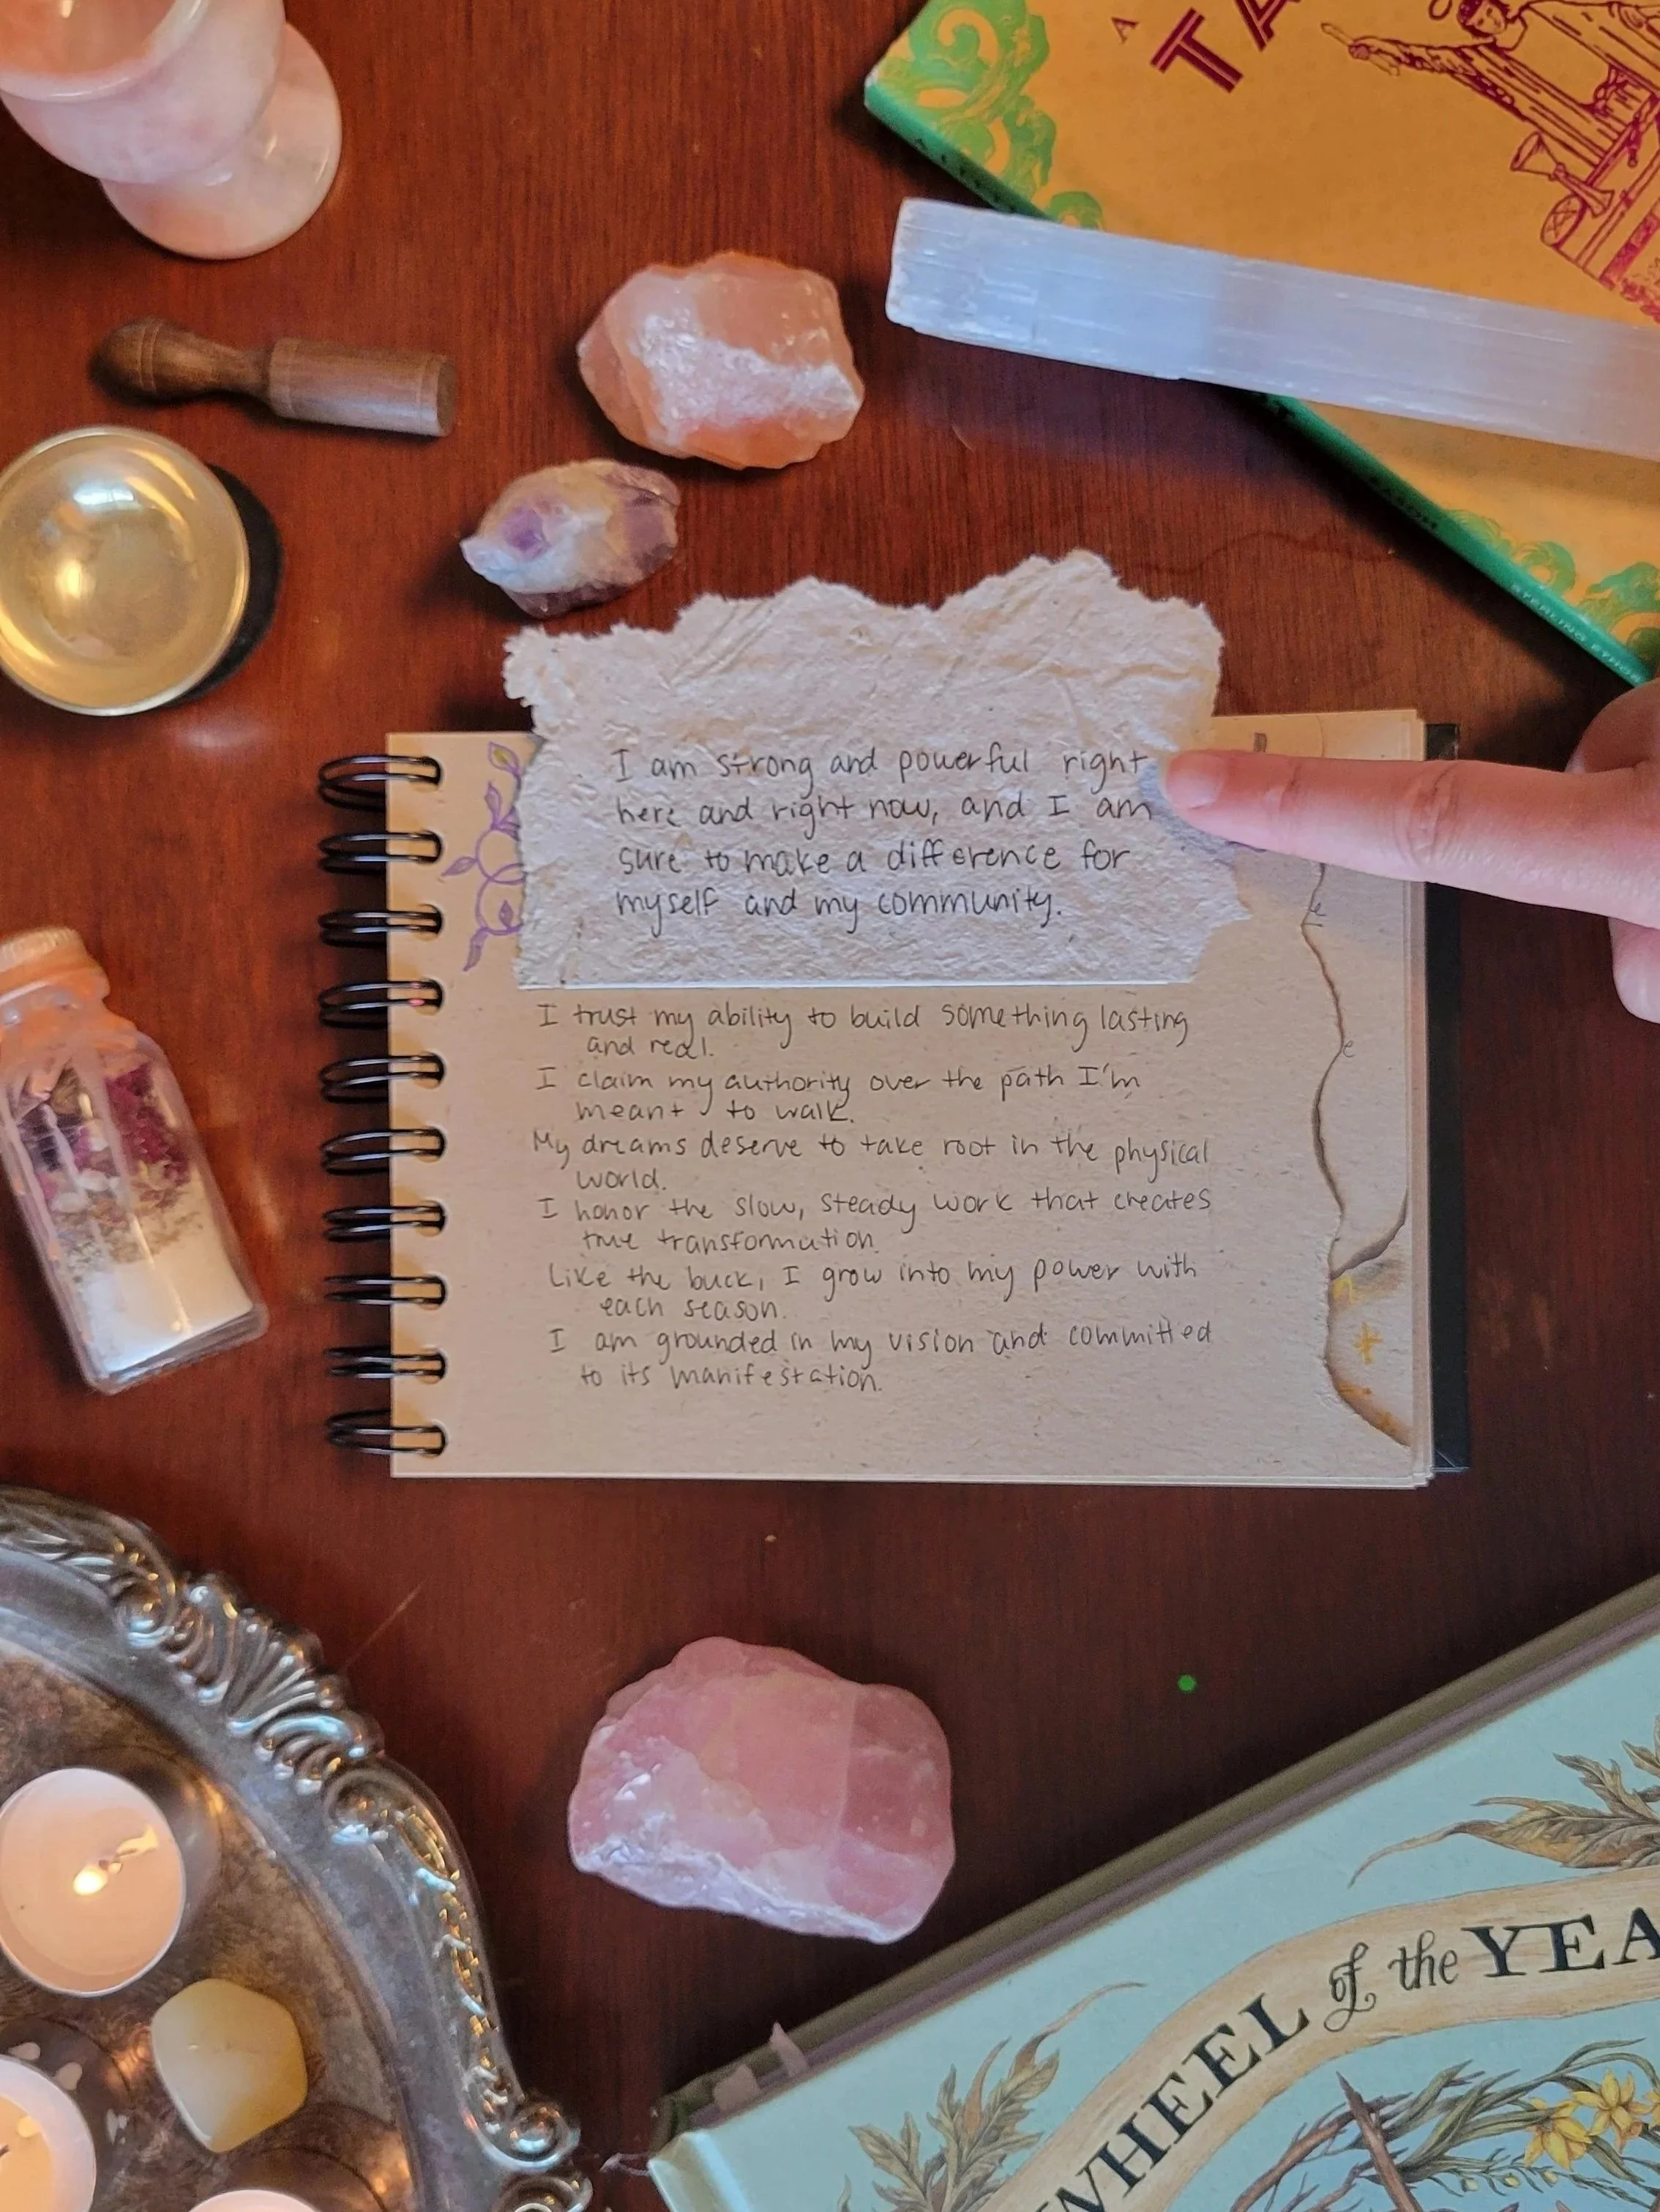 A
TA
STERLING ETHOS
I am strong and powerful right
here and right now, and I am
sure to make a difference for
myself and my community.
I trust my ability to build something lasting
and real.
I claim my authority over the path I'm
meant to walk.
My dreams deserve to take root in the physical
world.
I honor the slow, steady work that creates
true transformation.
Like the buck, I grow into my power with
each season.
I am grounded in my vision and committed
to its manifestation.
WHEEL of the YEA